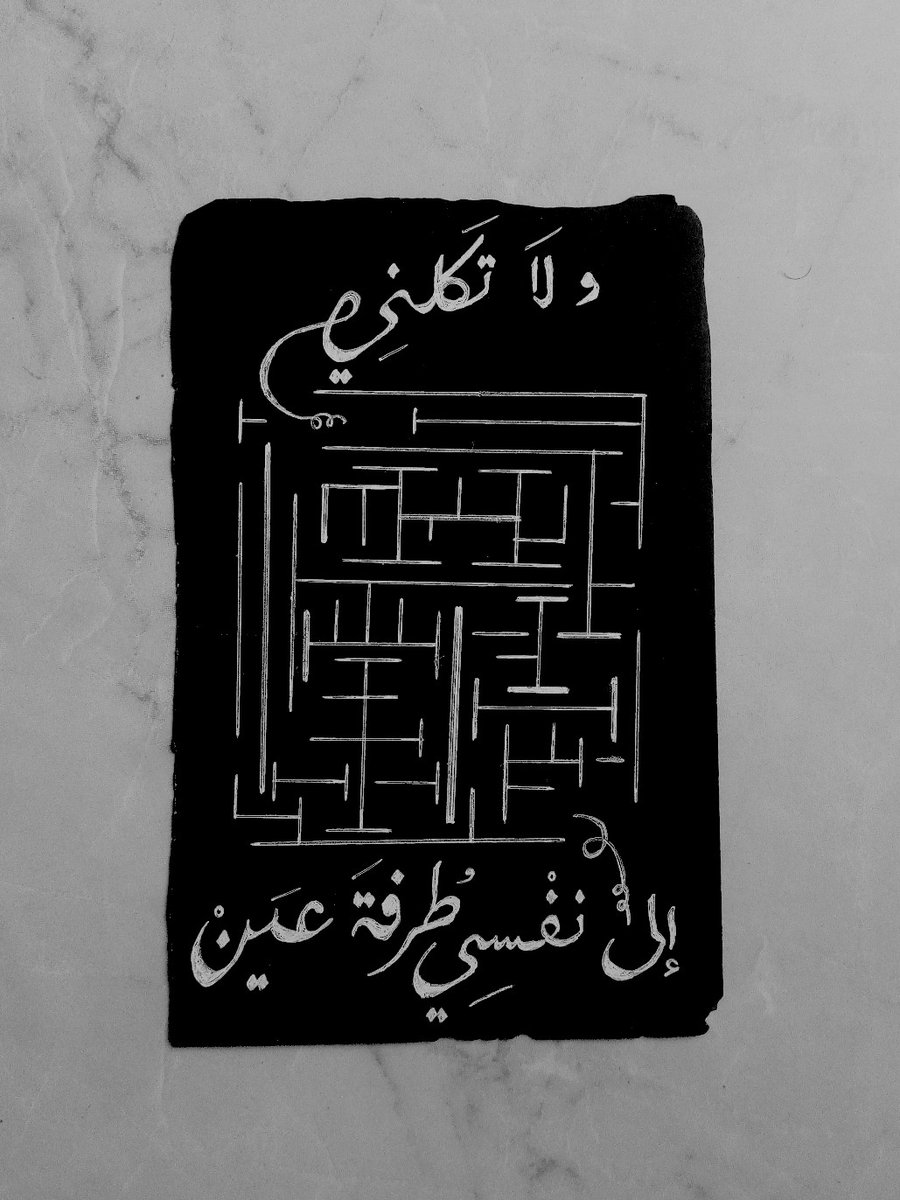 ولَا تَكلنيِ
إلى نفْسيِ طُرفةَ عَينْ